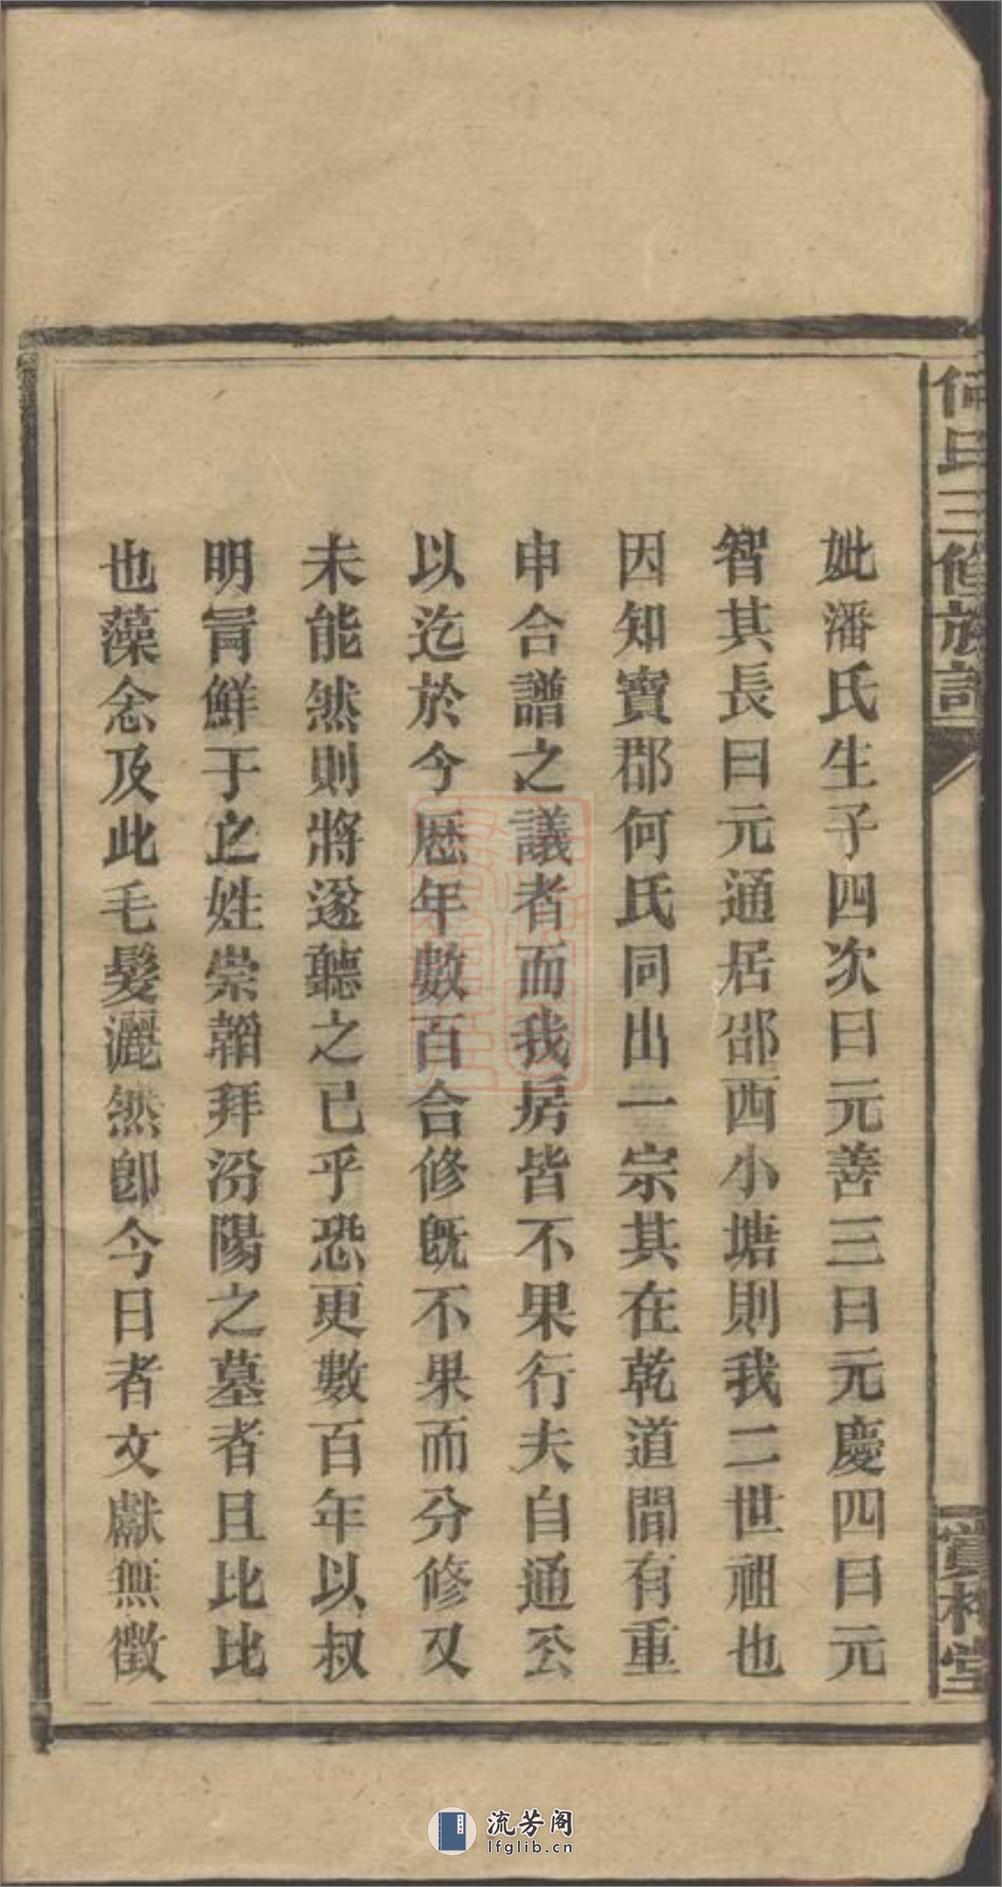 何氏三修族譜
妣潘氏生子四次曰元善三曰元慶四曰元
智其長曰元通居邵西小塘則我二世祖也
因知寳郡何氏同出一宗其在乾道間有重
申合譜之議者而我房皆不果行夫自通公
以迄於今歷年數百合修旣不果而分修又
未能然則將遂聽之已乎恐更數百年以叔
明胥鮮于之姓崇韜拜汾陽之墓者且比比
也藻念及此毛髮灑然卽今日者文獻無徵
賞梅堂
流芳阁
lfglib.cn